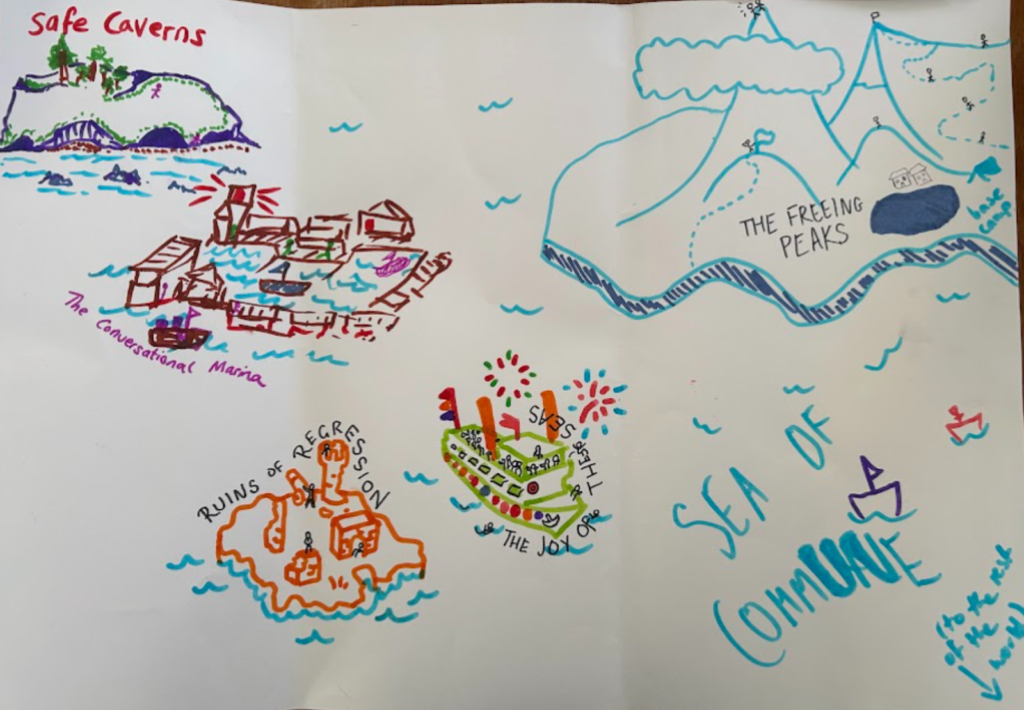 Safe Caverns
The Conversational Marina
THE FREEING
PEAKS
base
camp
RUINS OF REGRESSION
THE JOY OF THESE SEAS
SEA OF
COMMUNE
(to the rest
of the
world)